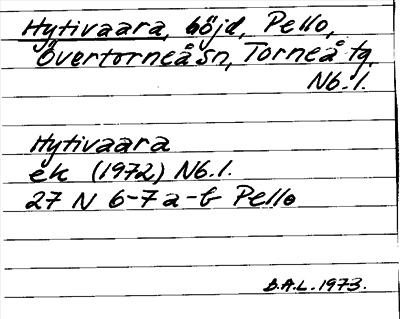 Hytivaara, höjd, Pello,
Övertorneå sn, Torneå tg,
Nb. l.
Hytivaara
ek (1972) Nb. l.
27 N 6-7 a-b Pello
B.A.L. 1973.